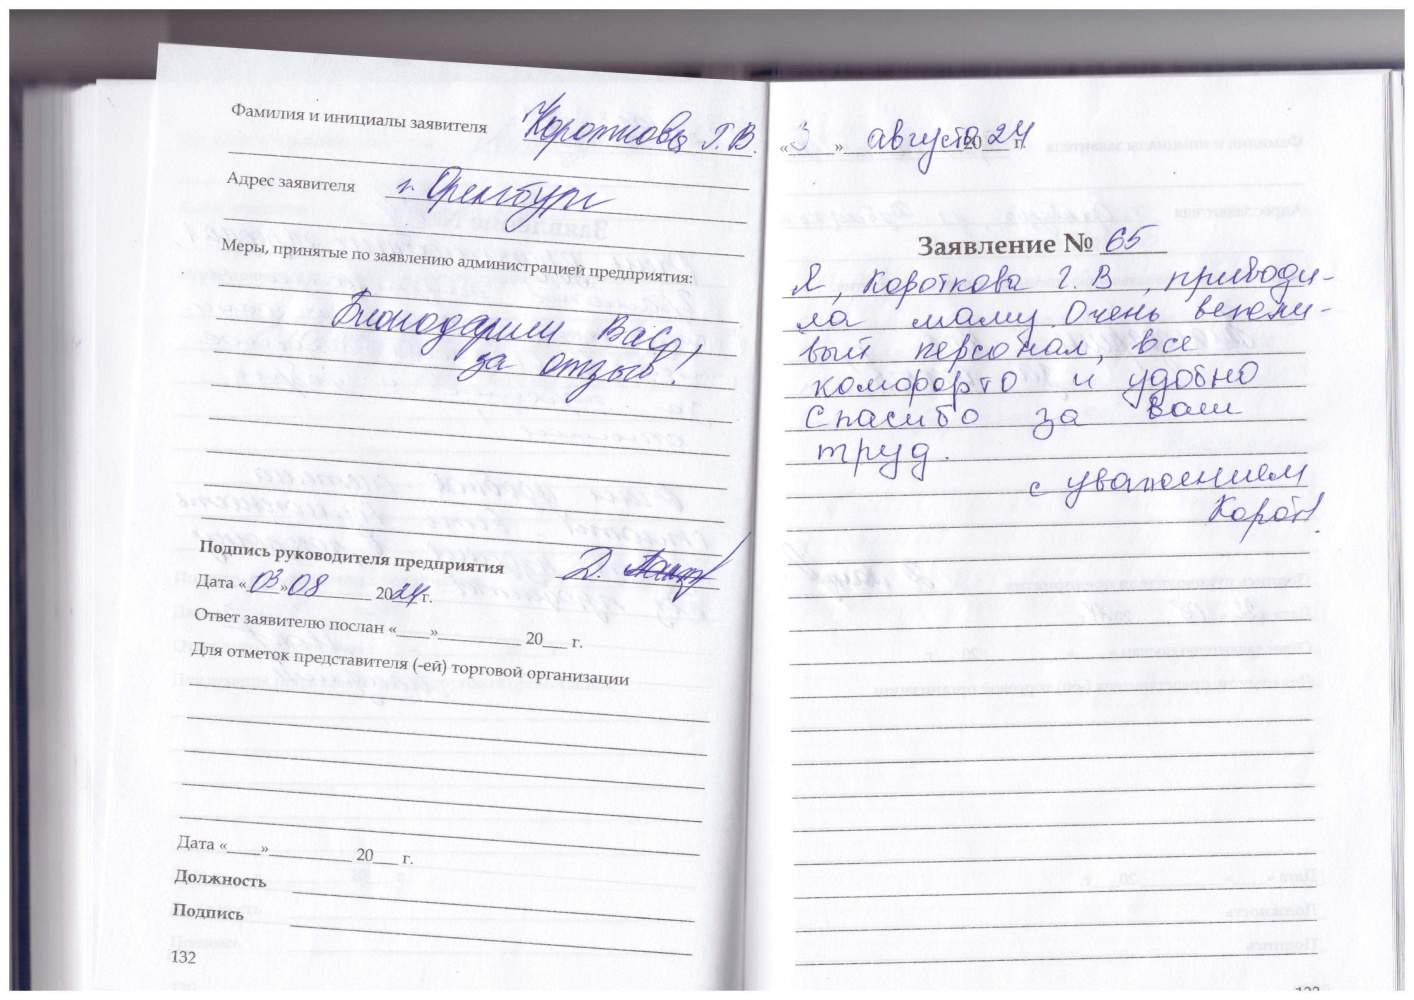 Фамилия и инициалы заявителя Короткова Г. В.
Адрес заявителя г. Оренбург
Меры, принятые по заявлению администрацией предприятия:
Благодарим Вас
за отзыв!
Подпись руководителя предприятия Д.
Дата «03»08 2024г.
Ответ заявителю послан «____»__________ 20___ г.
Для отметок представителя (-ей) торговой организации
Дата «____»__________ 20___ г.
Должность
Подпись
132
«3» августа 2024 г.
Заявление № 65
Я, Короткова Г. В, приводи-
ла маму. Очень вежли-
вый персонал, все
комфорто и удобно
Спасибо за ваш
труд.
с уважением
Корот